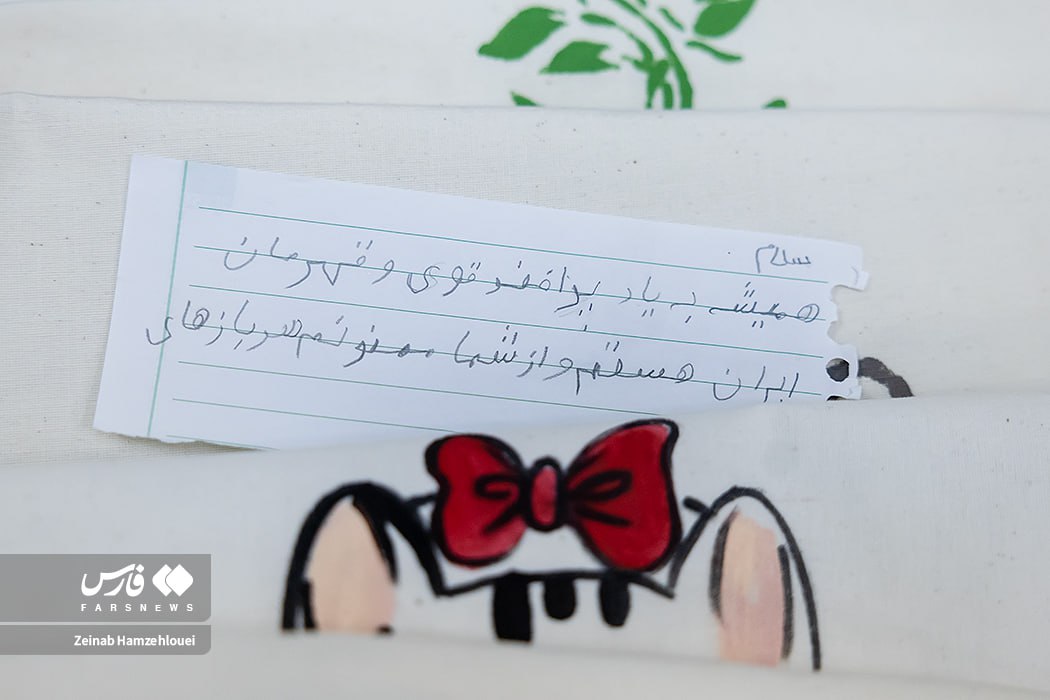 سلام
همیشه به یاد پدافند قوی و قهرمان
ایران هستم و از شما ممنونم سربازهای
فارس
FARSNEWS
Zeinab Hamzehlouei